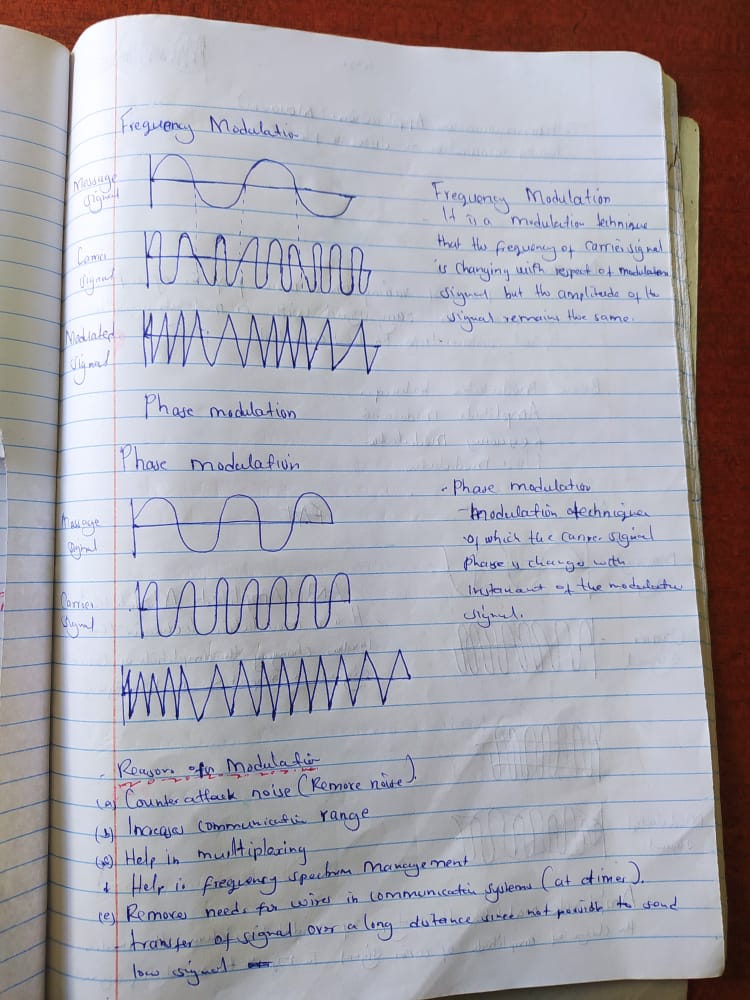 Frequency Modulation
Message
signal
Frequency Modulation
- It is a modulation technique
that the frequency of carrier signal
is changing with respect of modulation
signal, but the amplitude of the
signal remains the same.
Carrier
signal
Modulated
signal
Phase modulation
Phase modulation
Message
signal
- Phase modulation
- Modulation technique
of which the carrier signal
phase is change with
instant of the modulating
signal.
Carrier
signal
- Reasons for Modulation
(a) Counter attack noise (Remove noise).
(b) Increases communication range
(c) Help in multiplexing
d Help in frequency spectrum management
(e) Removes needs for wires in communication systems (at times).
- transfer of signal over a long distance since not possible to send
low signal